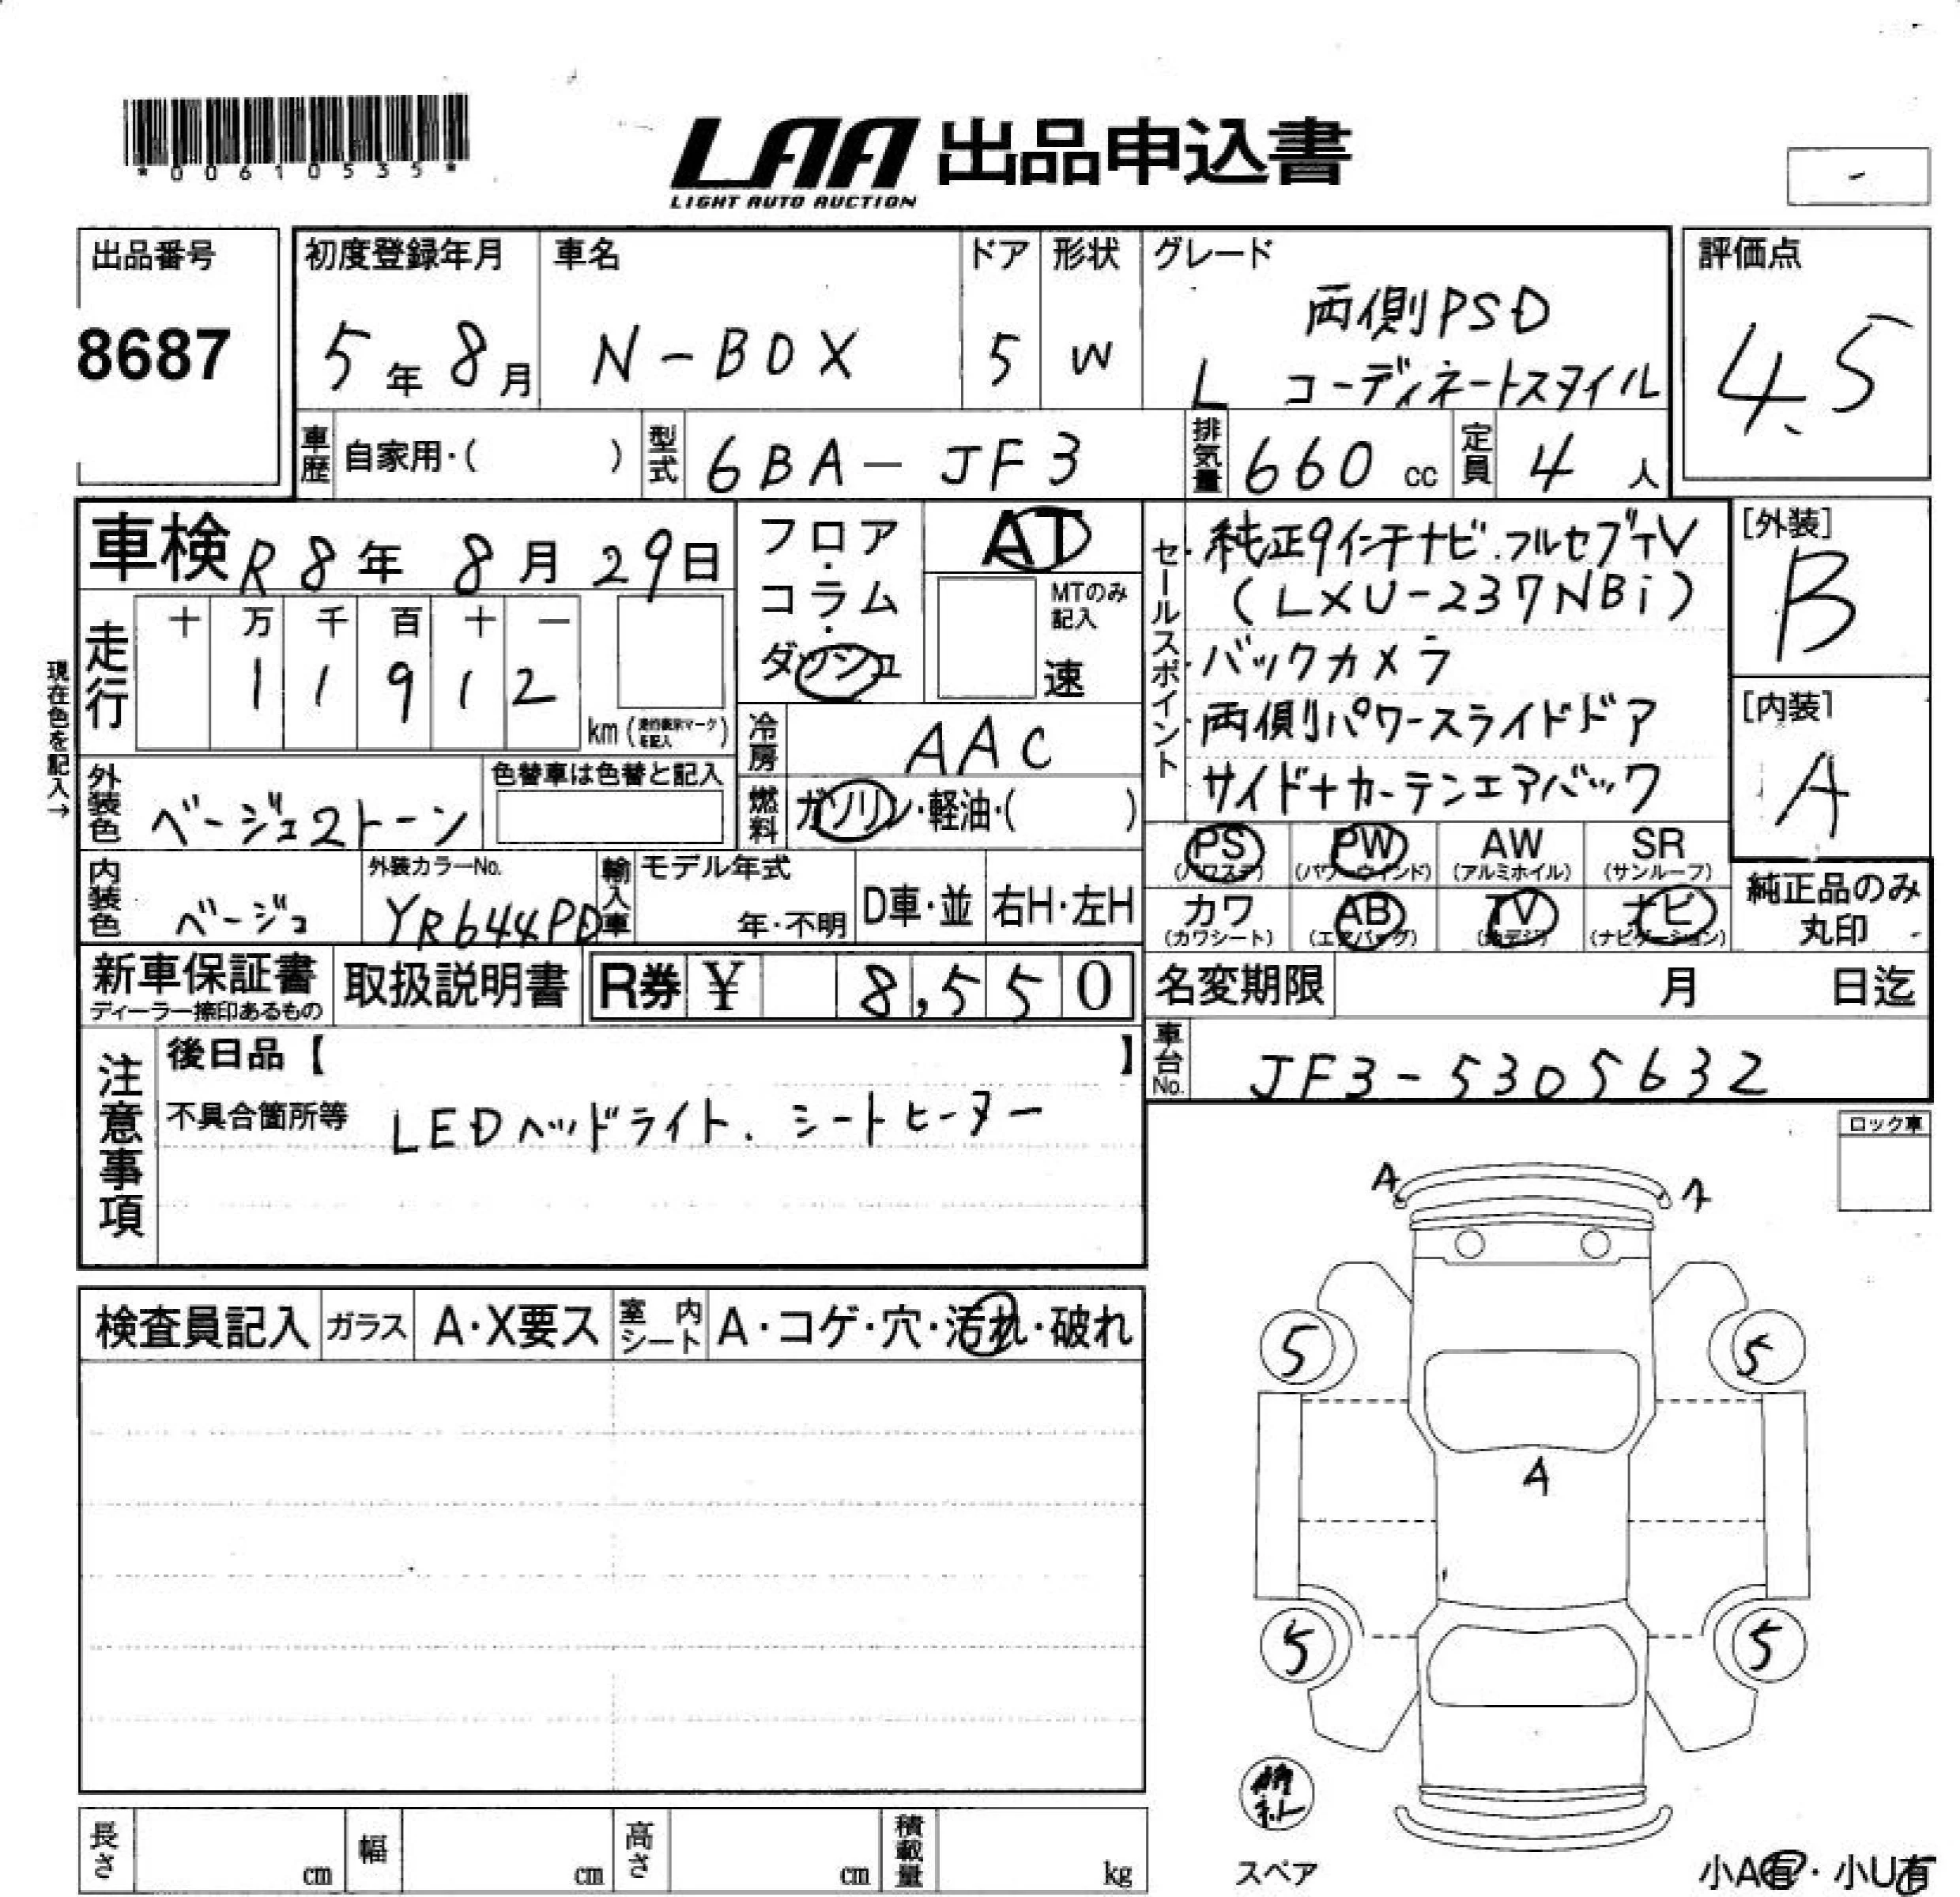 *00610535*
LAA 出品申込書
LIGHT AUTO AUCTION
-
出品番号
8687
初度登録年月
5年8月
車名
N-BOX
ドア
5
形状
W
グレード
両側PSD
L コーディネートスタイル
評価点
4.5
車歴 自家用・( )
型式 6BA-JF3
排気量 660 cc
定員 4 人
車検 R8年 8月 29日
フロア・コラム・ダッシュ
AT
MTのみ記入
速
現在色を記入→
走行
十 万 千 百 十 一
1 1 9 1 2
km( を記入 )
冷房 AAC
燃料 ガソリン・軽油・( )
外装色 ベージュ2トーン
色替車は色替と記入
内装色 ベージュ
外装カラーNo.
YR644PD
輸入車
モデル年式
年・不明
D車・並
右H・左H
セールスポイント
・純正9インチナビ.フルセグTV
(LXU-237NBi)
・バックカメラ
・両側パワースライドドア
サイド+カーテンエアバック
[外装]
B
[内装]
A
PS (パワステ)
PW (パワーウインド)
AW (アルミホイル)
SR (サンルーフ)
カワ (カワシート)
AB (エアバッグ)
TV (地デジ)
ナビ (ナビゲーション)
純正品のみ
丸印
新車保証書
ディーラー捺印あるもの
取扱説明書
R券 ¥ 8,550
名変期限 月 日迄
車台No. JF3-5305632
注意事項
後日品【 】
不具合箇所等 LEDヘッドライト、シートヒーター
ロック車
検査員記入
ガラス A・X要ス
室内シート A・コゲ・穴・汚れ・破れ
A
A
5
5
A
5
5
スペア
長さ cm
幅 cm
高さ cm
積載量 kg
小A有・小U有